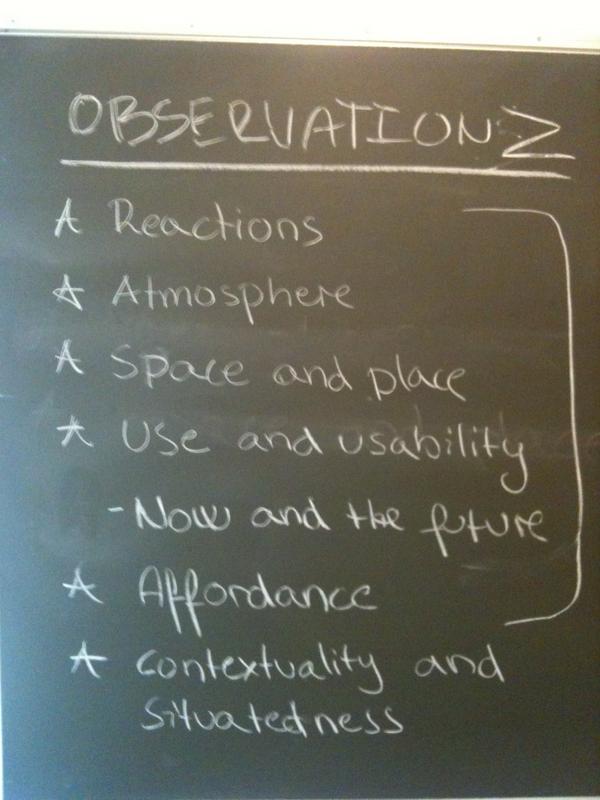 OBSERVATIONZ
* Reactions
* Atmosphere
* Space and place
* Use and usability
- Now and the future
* Affordance
* Contextuality and
situatedness